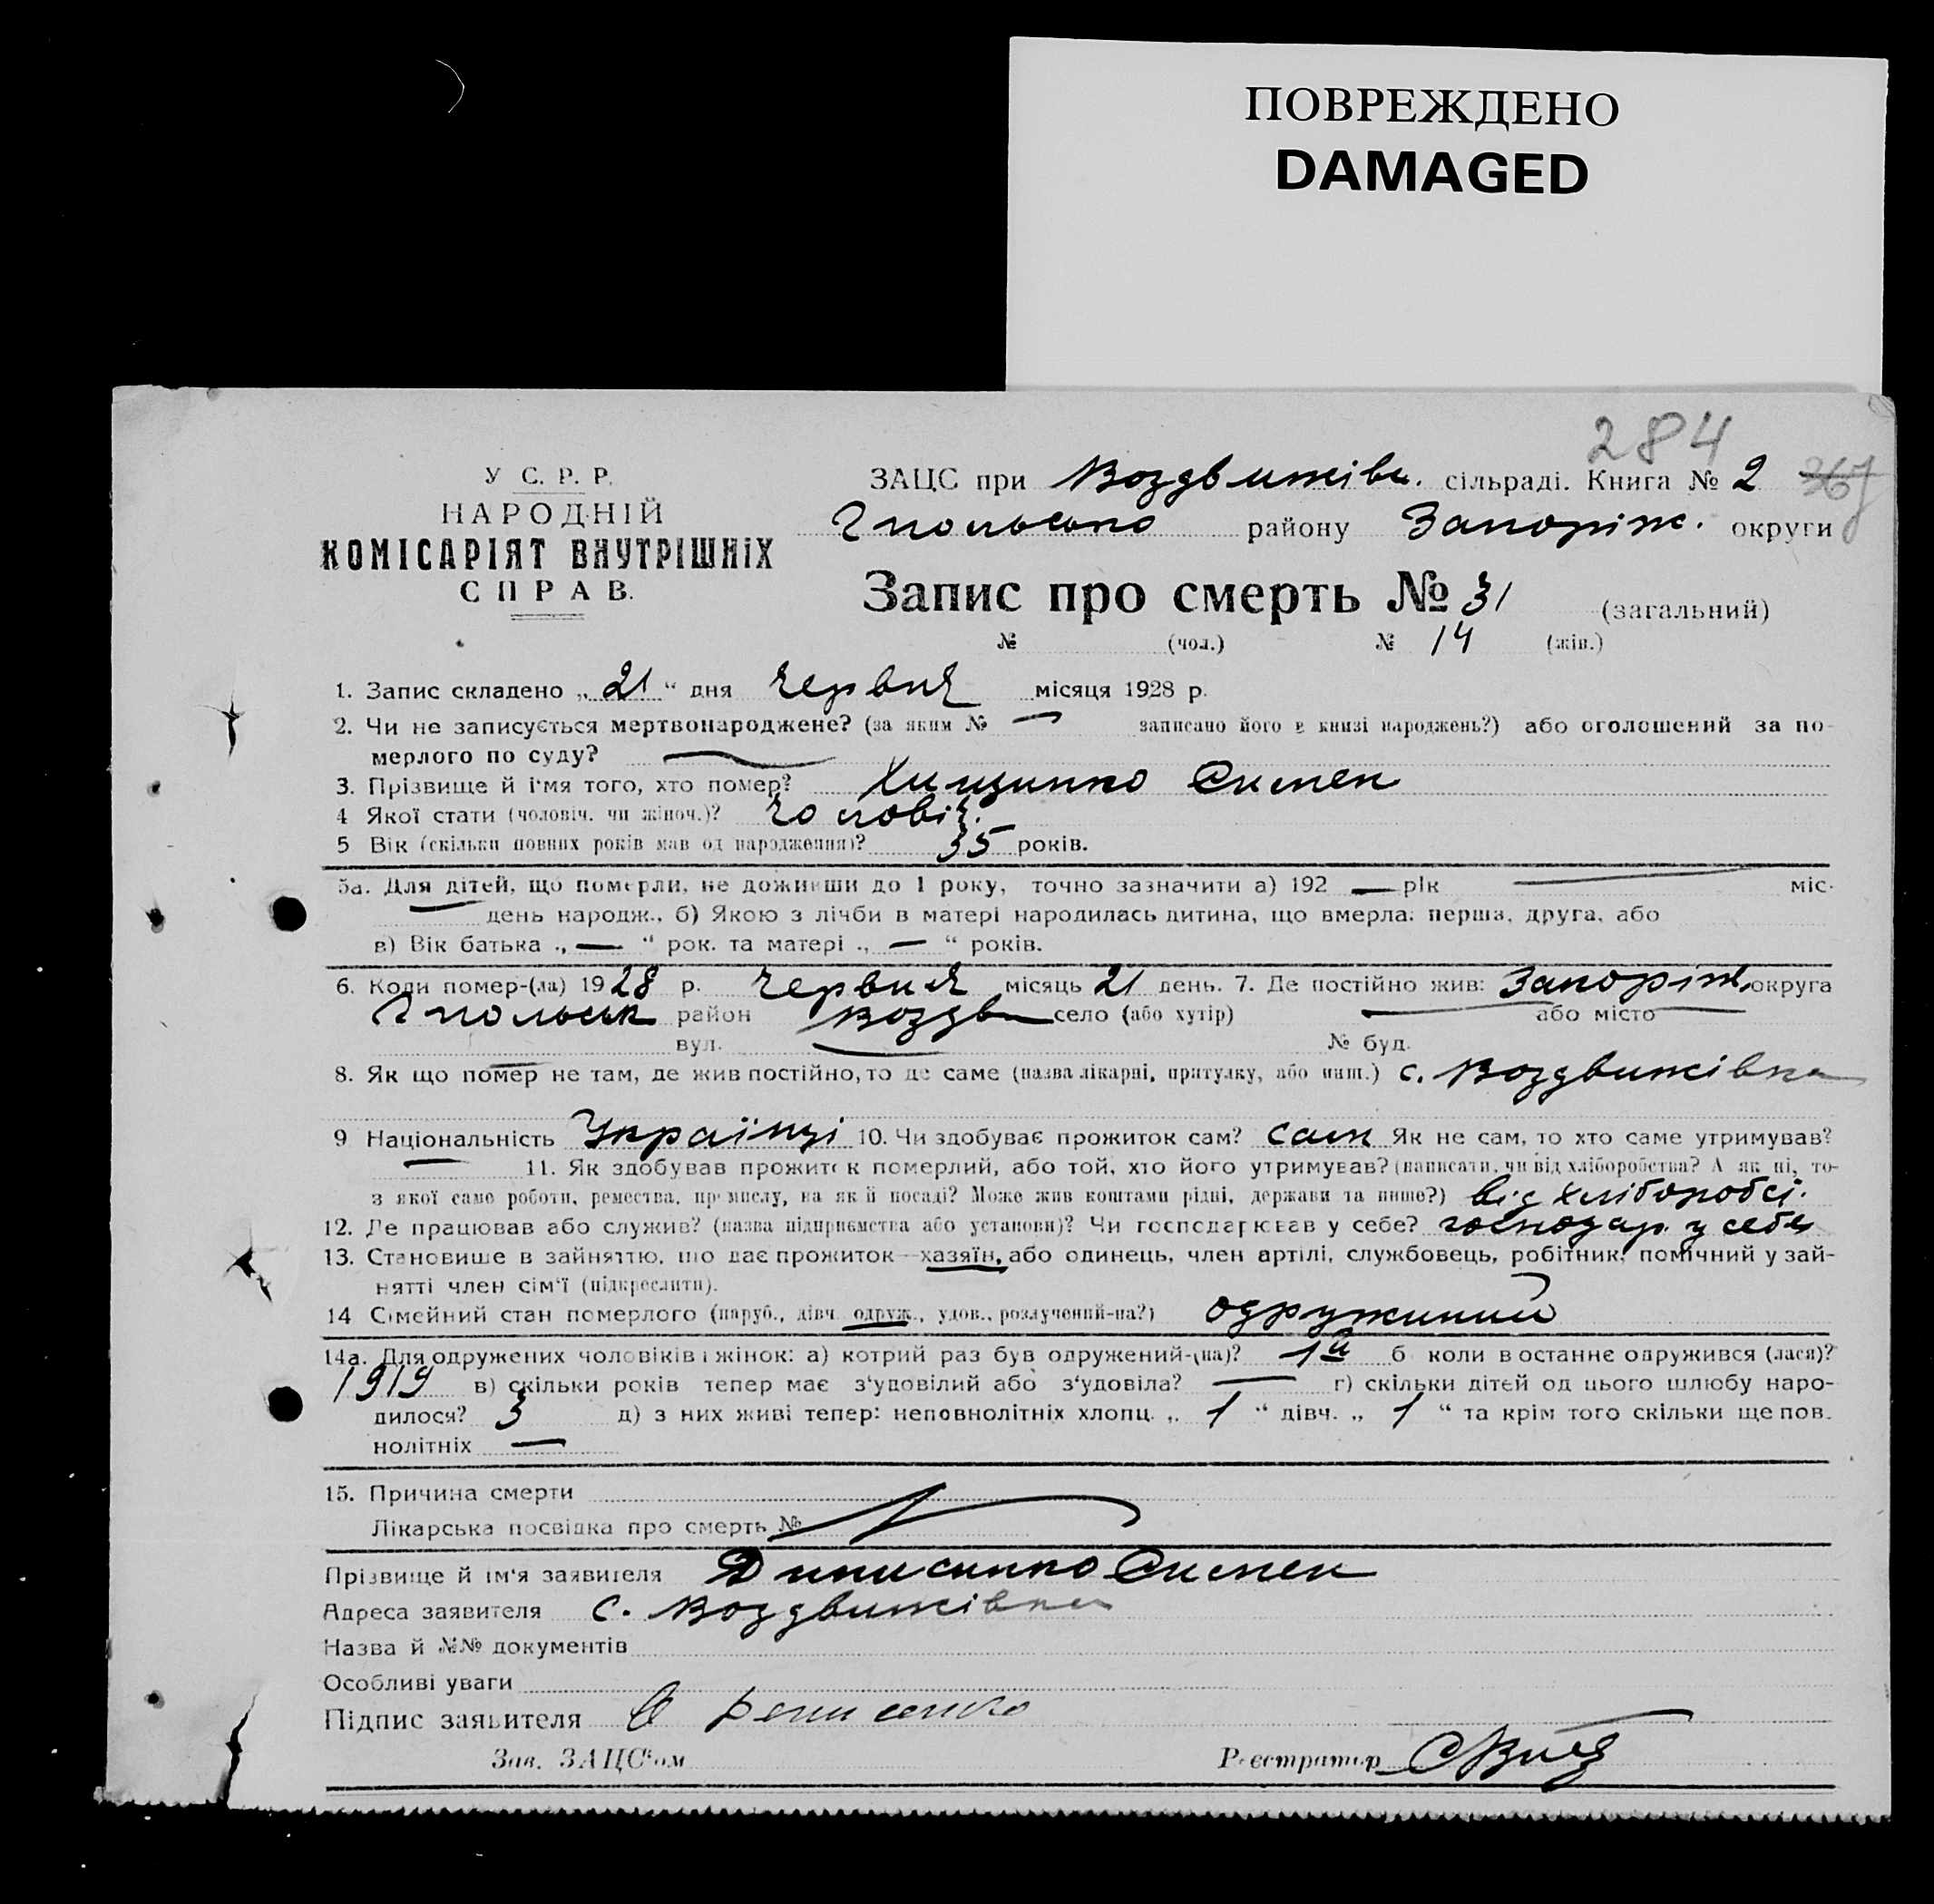 ПОВРЕЖДЕНО
DAMAGED
284
У С. Р. Р.
НАРОДНІЙ
КОМІСАРІЯТ ВНУТРІШНІХ
СПРАВ.
ЗАЦС при Воздвижівс. сільраді. Книга № 2 367
району Запоріж. округи
Запис про смерть № 31 (загальний)
№ (чол.) № 14 (жін.)
1. Запис складено „ 21 “ дня червня місяця 1928 р.
2. Чи не записується мертвонароджене? (за яким № — записано його в книзі народжень?) або оголошений за по-
мерлого по суду? —
3. Прізвище й ім'я того, хто помер? Симен
4 Якої стати (чоловіч. чи жіноч.)? чоловіч.
5 Вік (скільки повних років мав од народження)? 35 років.
5а. Для дітей, що померли, не доживши до 1 року, точно зазначити а) 192 — рік — міс.
— день народж., б) Якою з лічби в матері народилась дитина, що вмерла: перша, друга, або
в) Вік батька „ — “ рок. та матері „ — “ років.
6. Коли помер-(ла) 1928 р. червня місяць 21 день. 7. Де постійно жив: Запоріж. округа
район Воздв село (або хутір) — або місто —
вул. — № буд.
8. Як що помер не там, де жив постійно, то де саме (назва лікарні, притулку, або инш.) с. Воздвижівка
9 Національність Українці 10. Чи здобуває прожиток сам? сам Як не сам, то хто саме утримував?
— 11. Як здобував прожиток померлий, або той, хто його утримував? (написати, чи від хліборобства? А як ні, то-
з якої саме роботи, ремества, промислу, на якій посаді? Може жив коштами рідні, держави та инше?) від хліборобсі.
12. Де працював або служив? (назва підприємства або установи)? Чи господарював у себе? господар. у себе
13. Становище в зайняттю, що дає прожиток—хазяїн, або одинець, член артілі, службовець, робітник, помічний у зай-
нятті член сім'ї (підкреслити).
14 Сімейний стан померлого (паруб., дівч., одруж., удов., розлучений-на?) одружиний
14а. Для одружених чоловіків і жінок: а) котрий раз був одружений-(на)? 1й б коли в останнє одружився (лася)?
1919 в) скільки років тепер має з'удовілий або з'удовіла? — г) скільки дітей од цього шлюбу наро-
дилося? 3 д) з них живі тепер: неповнолітніх хлопц. „ 1 “ дівч. „ 1 “ та крім того скільки ще пов.
нолітніх —
15. Причина смерти
Лікарська посвідка про смерть №
Прізвище й ім'я заявителя Динисинко Симен
Адреса заявителя с. Воздвижівка
Назва й №№ документів
Особливі уваги
Підпис заявителя Денисенко
Зав. ЗАЦС'ом Реєстратор